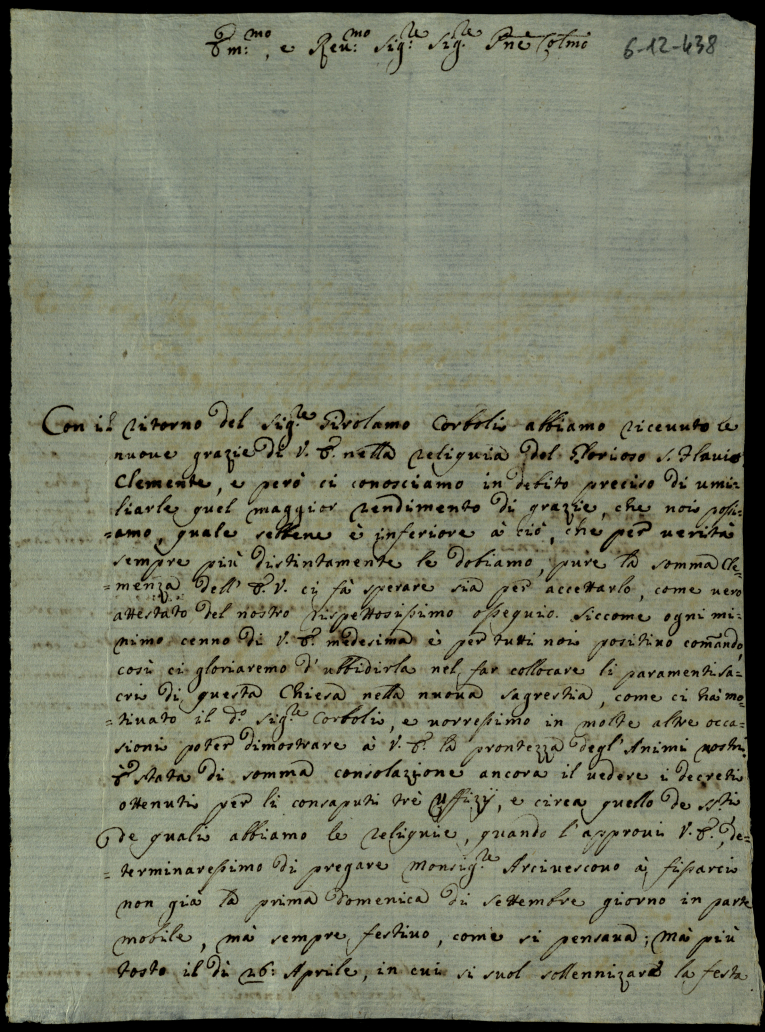 Em:mo, e Reu:mo Sig:re Sig:re Pne Colmo
6-12-438
Con il ritorno del Sig:re Girolamo Corboli abbiamo riceuuto le
nuoue grazie di V. E. nella reliquia del Glorioso S. Flauio
Clemente, e però ci conosciamo in debito preciso di umi-
liarle quel maggior rendimento di grazie, che noi possi-
=amo, quale sebbene è inferiore à ciò, che per verità
sempre più distintamente le dobiamo, pure la somma Cle-
=menza dell' E. V. ci fà sperare sia per accettarlo, come uero
attestato del nostro rispettosissimo ossequio. Siccome ogni mi-
nimo cenno di V. E. medesima è per tutti noi positiuo comando,
così ci gloriaremo d' ubbidirla nel far collocare li paramenti sa-
cri di questa Chiesa nella nuoua sagrestia, come ci hà mo-
=tiuato il d:o Sig:re Corboli, e uorressimo in molte altre occa-
sioni poter dimostrare à V. E. la prontezza degl' Animi nostri.
E stata di somma consolazione ancora il uedere i decreti
ottenuti per li consaputi trè Uffizij, e circa quello de SS:ti
de quali abbiamo le reliquie, quando l' approui V. E., de-
=terminaressimo di pregare Monsig:re Arciuescouo à fissarci
non già la prima domenica di settembre giorno in parte
mobile, mà sempre festiuo, come si pensaua; mà più
tosto il dì 26: Aprile, in cui si suol sollennizare la festa